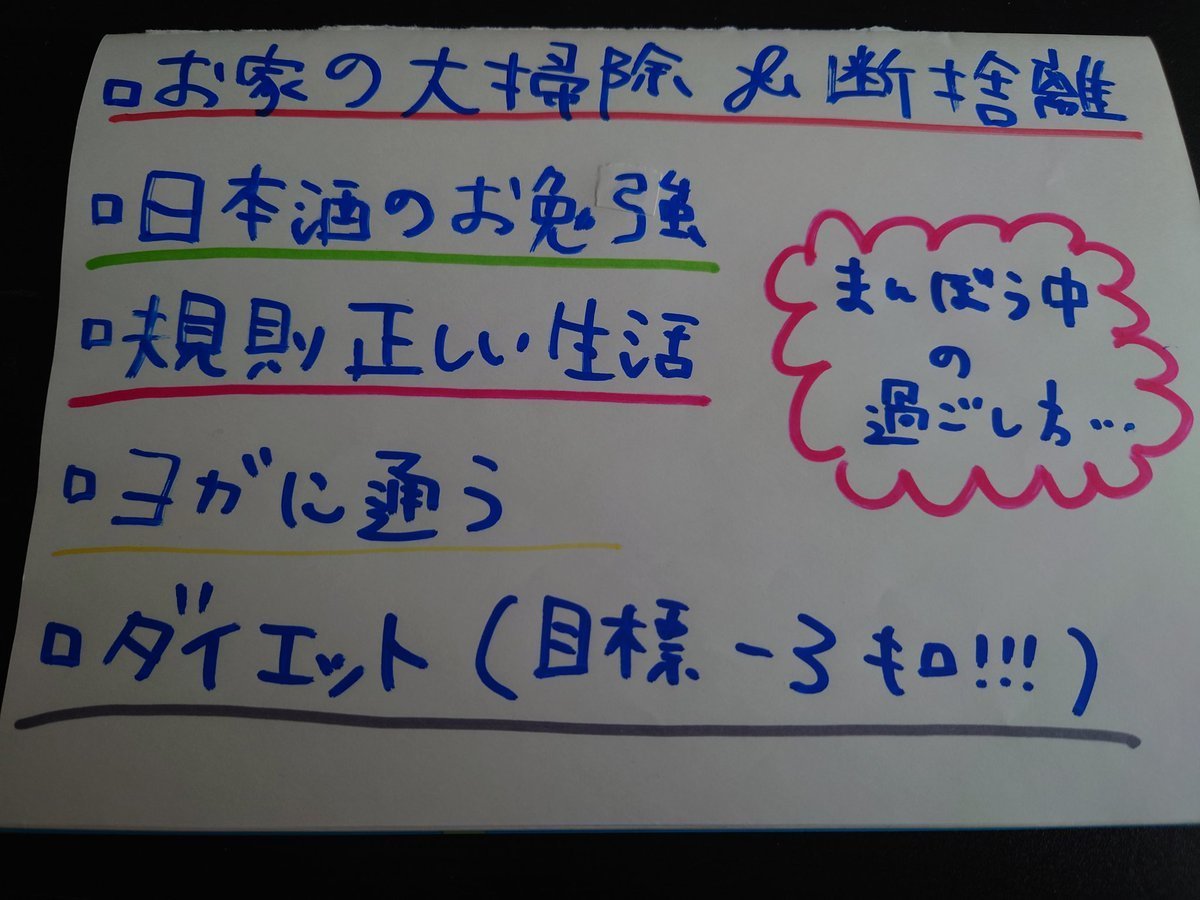 □お家の大掃除 & 断捨離
□日本酒のお勉強
□規則正しい生活
□ヨガに通う
□ダイエット (目標 -3キロ!!!)
まんぼう中
の
過ごし方...